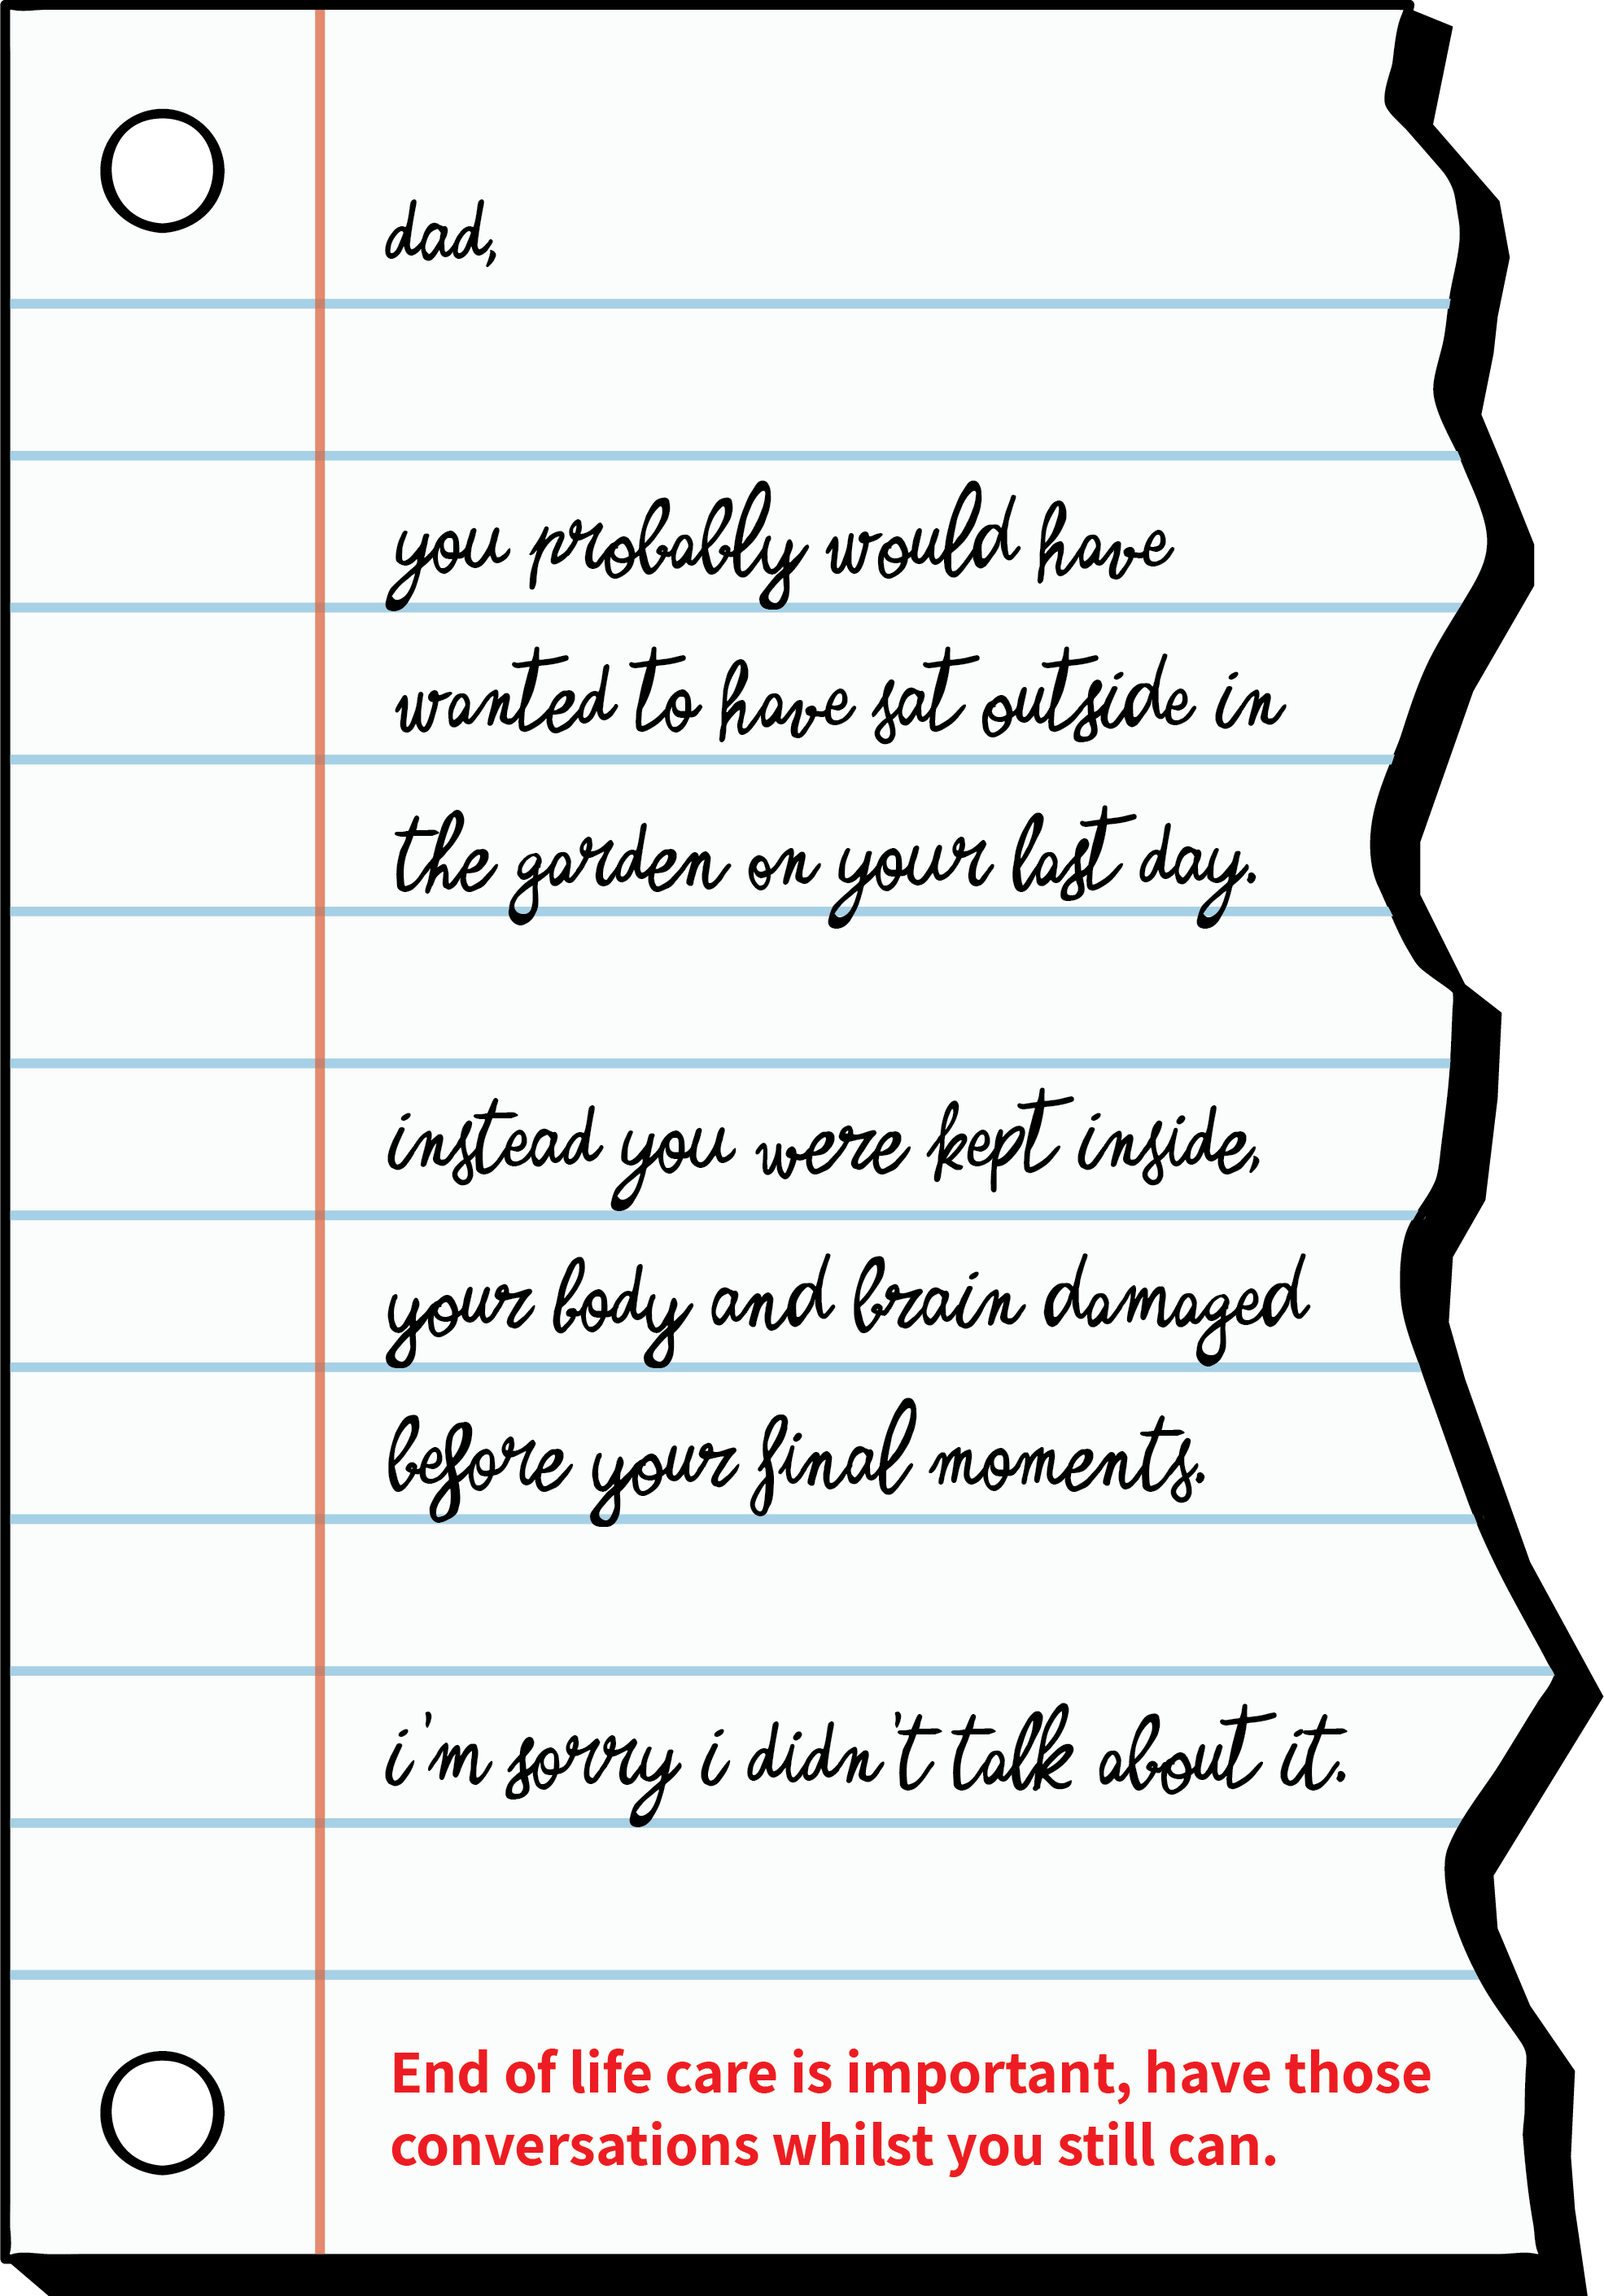 dad,
you probably would have
wanted to have sat outside in
the garden on your last day.
instead you were kept inside,
your body and brain damaged
before your final moments.
i'm sorry i didn't talk about it.
End of life care is important, have those
conversations whilst you still can.